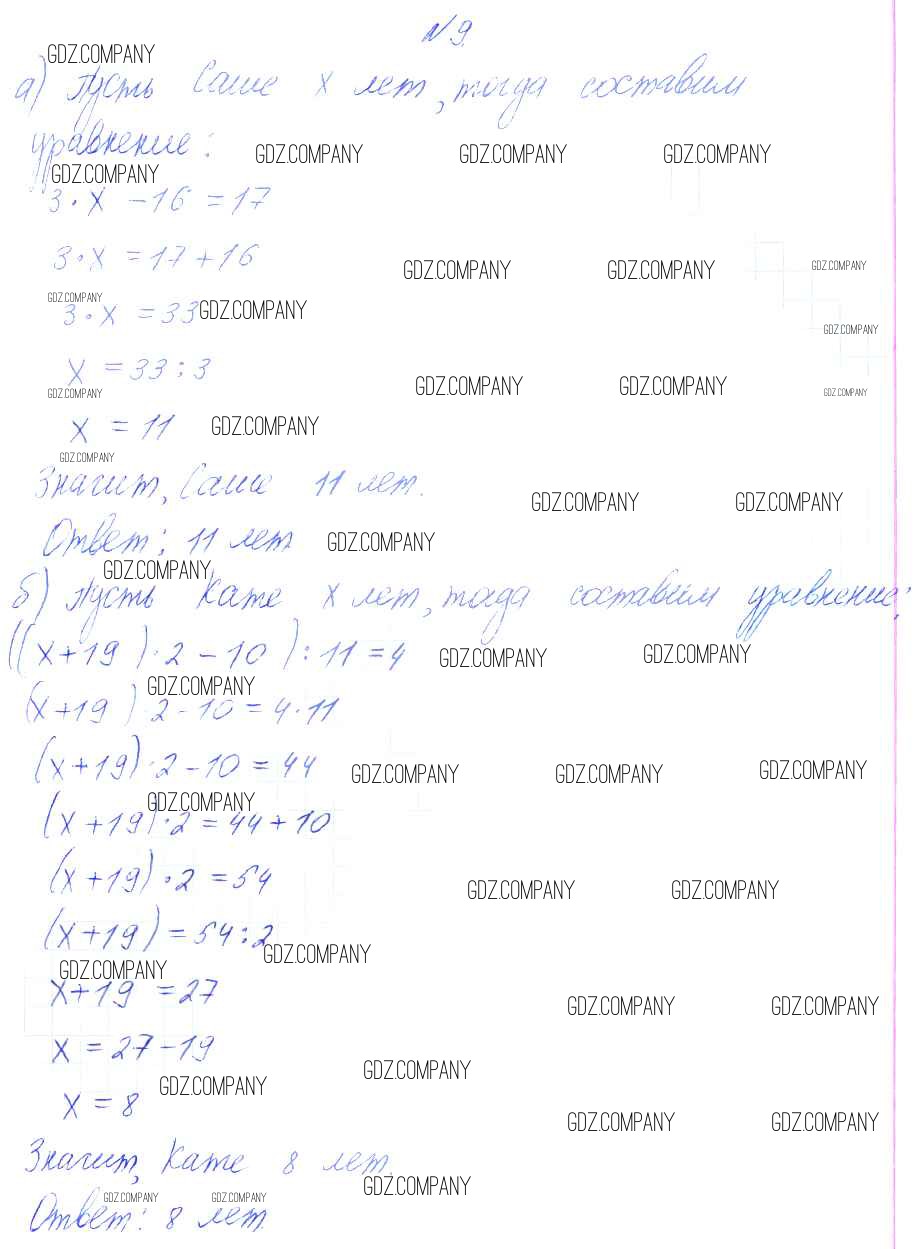 N 9.
GDZ.COMPANY
а) Пусть Саше x лет, тогда составим
уравнение:
GDZ.COMPANY GDZ.COMPANY GDZ.COMPANY
GDZ.COMPANY
3·x - 16 = 17
3·x = 17 + 16
GDZ.COMPANY GDZ.COMPANY GDZ.COMPANY
GDZ.COMPANY
3·x = 33 GDZ.COMPANY
GDZ.COMPANY
x = 33 : 3
GDZ.COMPANY GDZ.COMPANY GDZ.COMPANY GDZ.COMPANY
x = 11 GDZ.COMPANY
GDZ.COMPANY
Значит, Саше 11 лет.
GDZ.COMPANY GDZ.COMPANY
Ответ: 11 лет GDZ.COMPANY
GDZ.COMPANY
б) Пусть Кате x лет, тогда составим уравнение:
((x+19)·2-10):11=4 GDZ.COMPANY GDZ.COMPANY
GDZ.COMPANY
(x+19)·2-10=4·11
(x+19)·2-10=44 GDZ.COMPANY GDZ.COMPANY GDZ.COMPANY
GDZ.COMPANY
(x+19)·2=44+10
(x+19)·2=54 GDZ.COMPANY GDZ.COMPANY
(x+19)=54:2
GDZ.COMPANY
GDZ.COMPANY
x+19=27
GDZ.COMPANY GDZ.COMPANY
x=27-19
GDZ.COMPANY GDZ.COMPANY
x=8
GDZ.COMPANY GDZ.COMPANY
Значит, Кате 8 лет.
GDZ.COMPANY
GDZ.COMPANY GDZ.COMPANY
Ответ: 8 лет.